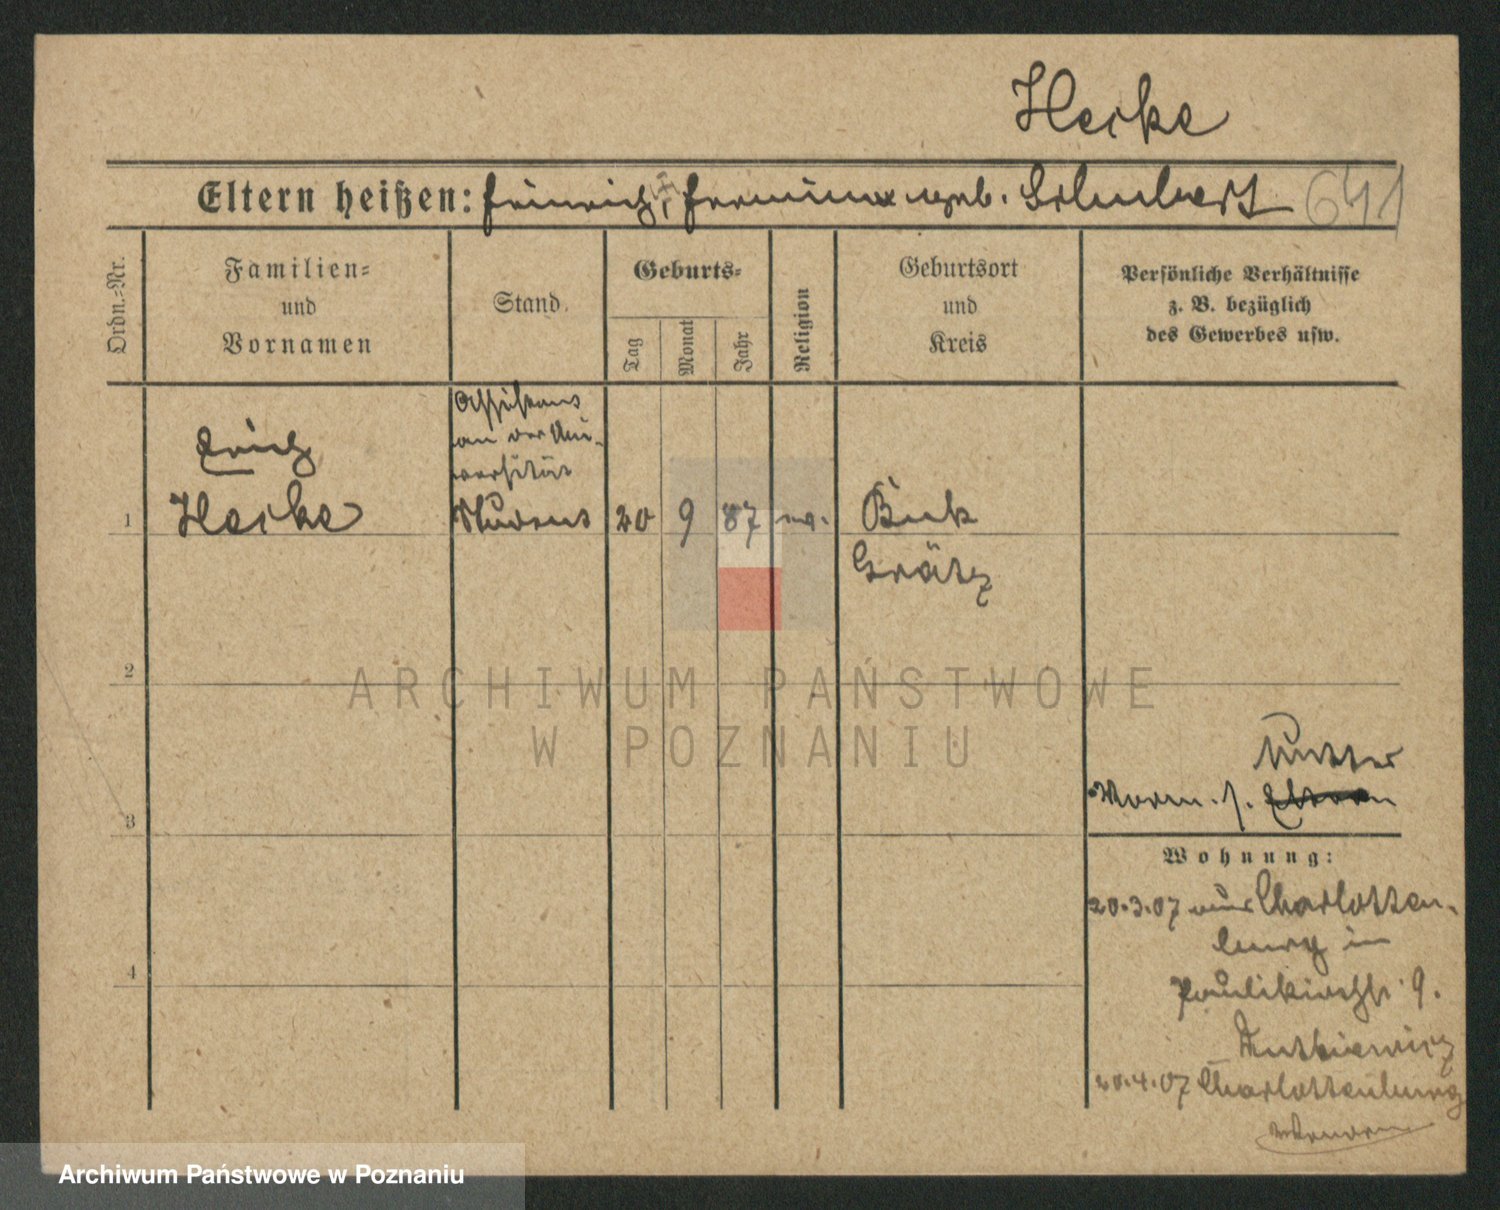 Heike
Eltern heißen: Heinrich †, Hermine geb. Schubert 641
Ordn.-Nr.
Familien-
und
Vornamen
Stand.
Geburts-
Tag
Monat
Jahr
Religion
Geburtsort
und
Kreis
Persönliche Verhältnisse
z. B. bezüglich
des Gewerbes usw.
Assistent
an der Uni-
versität
Erich
1 Heike Student 20 9 87 ev. Buk
Grätz
2
3
4
Mutter
Worm. s. Eltern
Wohnung:
20.3.07 aus Charlotten-
burg in
Paulikirchstr. 9.
20.4.07 Charlottenburg
ARCHIWUM PAŃSTWOWE
W POZNANIU
Archiwum Państwowe w Poznaniu